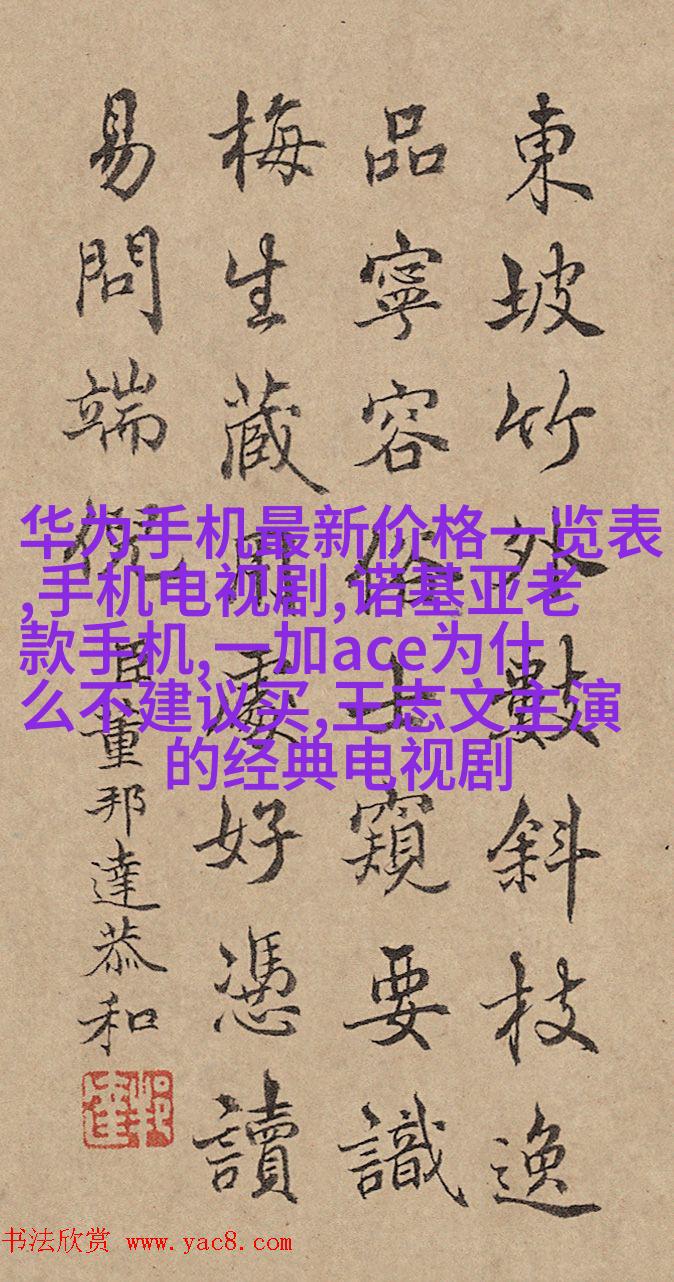 東坡竹外數斜枝逸
品寧容俗士窺要識
梅生藏用處好憑讀
易問端倪
臣董邦達恭和
华为手机最新价格一览表
,手机电视剧,诺基亚老
款手机,一加ace为什
么不建议买,王志文主演
的经典电视剧
书法欣赏 www.yac8.com